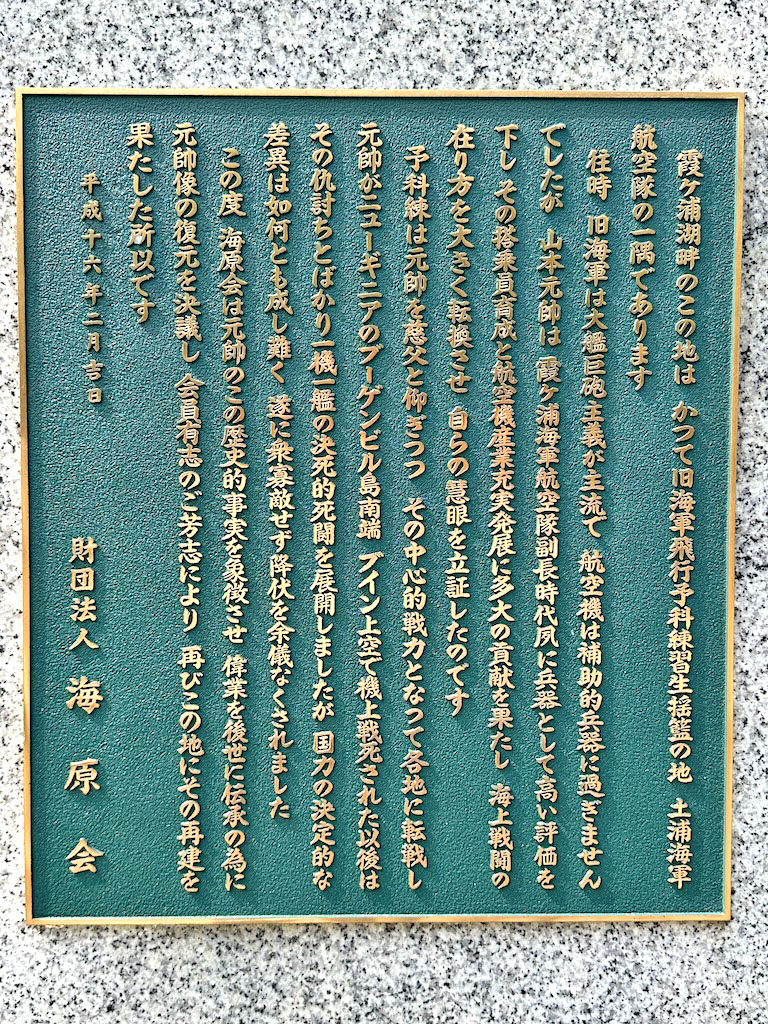 霞ケ浦湖畔のこの地は　かつて旧海軍飛行予科練習生揺籃の地　土浦海軍
航空隊の一隅であります
往時　旧海軍は大艦巨砲主義が主流で　航空機は補助的兵器に過ぎません
でしたが　山本元帥は　霞ケ浦海軍航空隊副長時代夙に兵器として高い評価を
下し　その搭乗員育成と航空機産業充実発展に多大の貢献を果たし　海上戦闘の
在り方を大きく転換させ　自らの慧眼を立証したのです
予科練は元帥を慈父と仰ぎつつ　その中心的戦力となって各地に転戦し
元帥がニューギニアのブーゲンビル島南端　ブイン上空で機上戦死された以後は
その仇討ちとばかり一機一艦の決死的死闘を展開しましたが　国力の決定的な
差異は如何とも成し難く　遂に衆寡敵せず降伏を余儀なくされました
この度　海原会は元帥のこの歴史的事実を象徴させ　偉業を後世に伝承の為に
元帥像の復元を決議し　会員有志のご芳志により　再びこの地にその再建を
果たした所以です
平成十六年二月吉日
財団法人　海原会